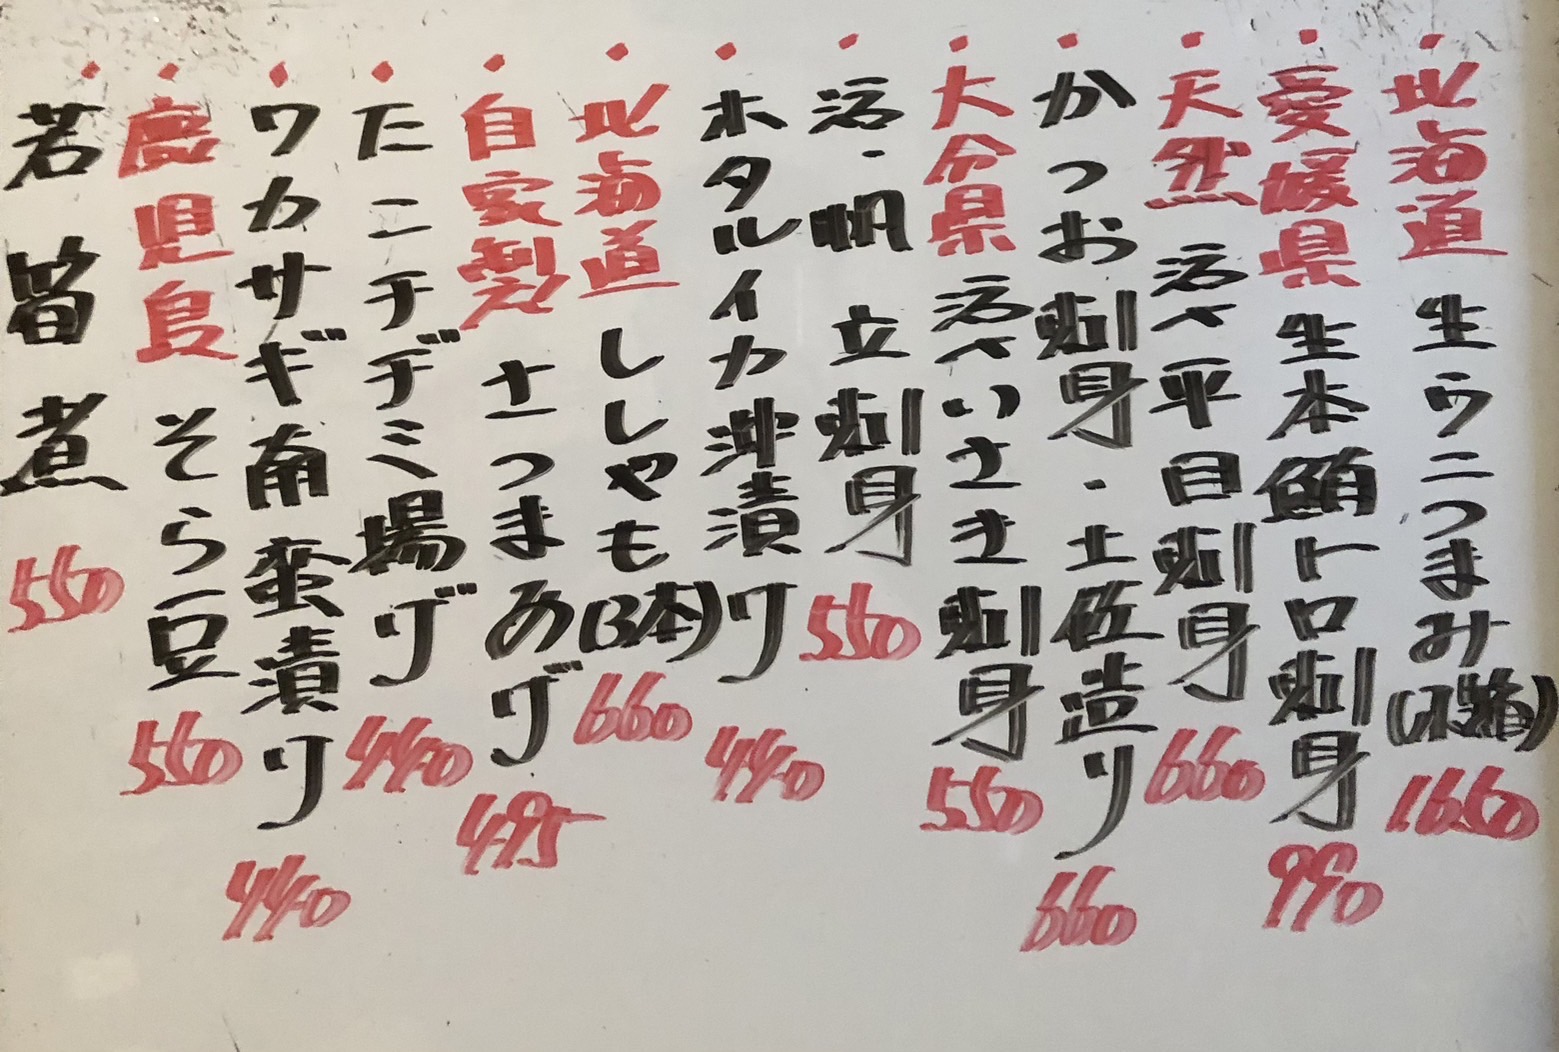 ・北海道 生ウニつまみ(小箱) 1650
・愛媛県 生本鮪トロ刺身 990
・天然 活〆平目刺身 660
・かつお刺身・土佐造り 660
・大分県 活〆いさき刺身 550
・活・帆立刺身 550
・ホタルイカ沖漬り 440
・北海道 ししゃも(3本) 660
・自家製 さつまあげ 495
・たこチヂミ揚げ 440
・ワカサギ南蛮漬り 440
・鹿児島 そら豆 550
・若 煮 550